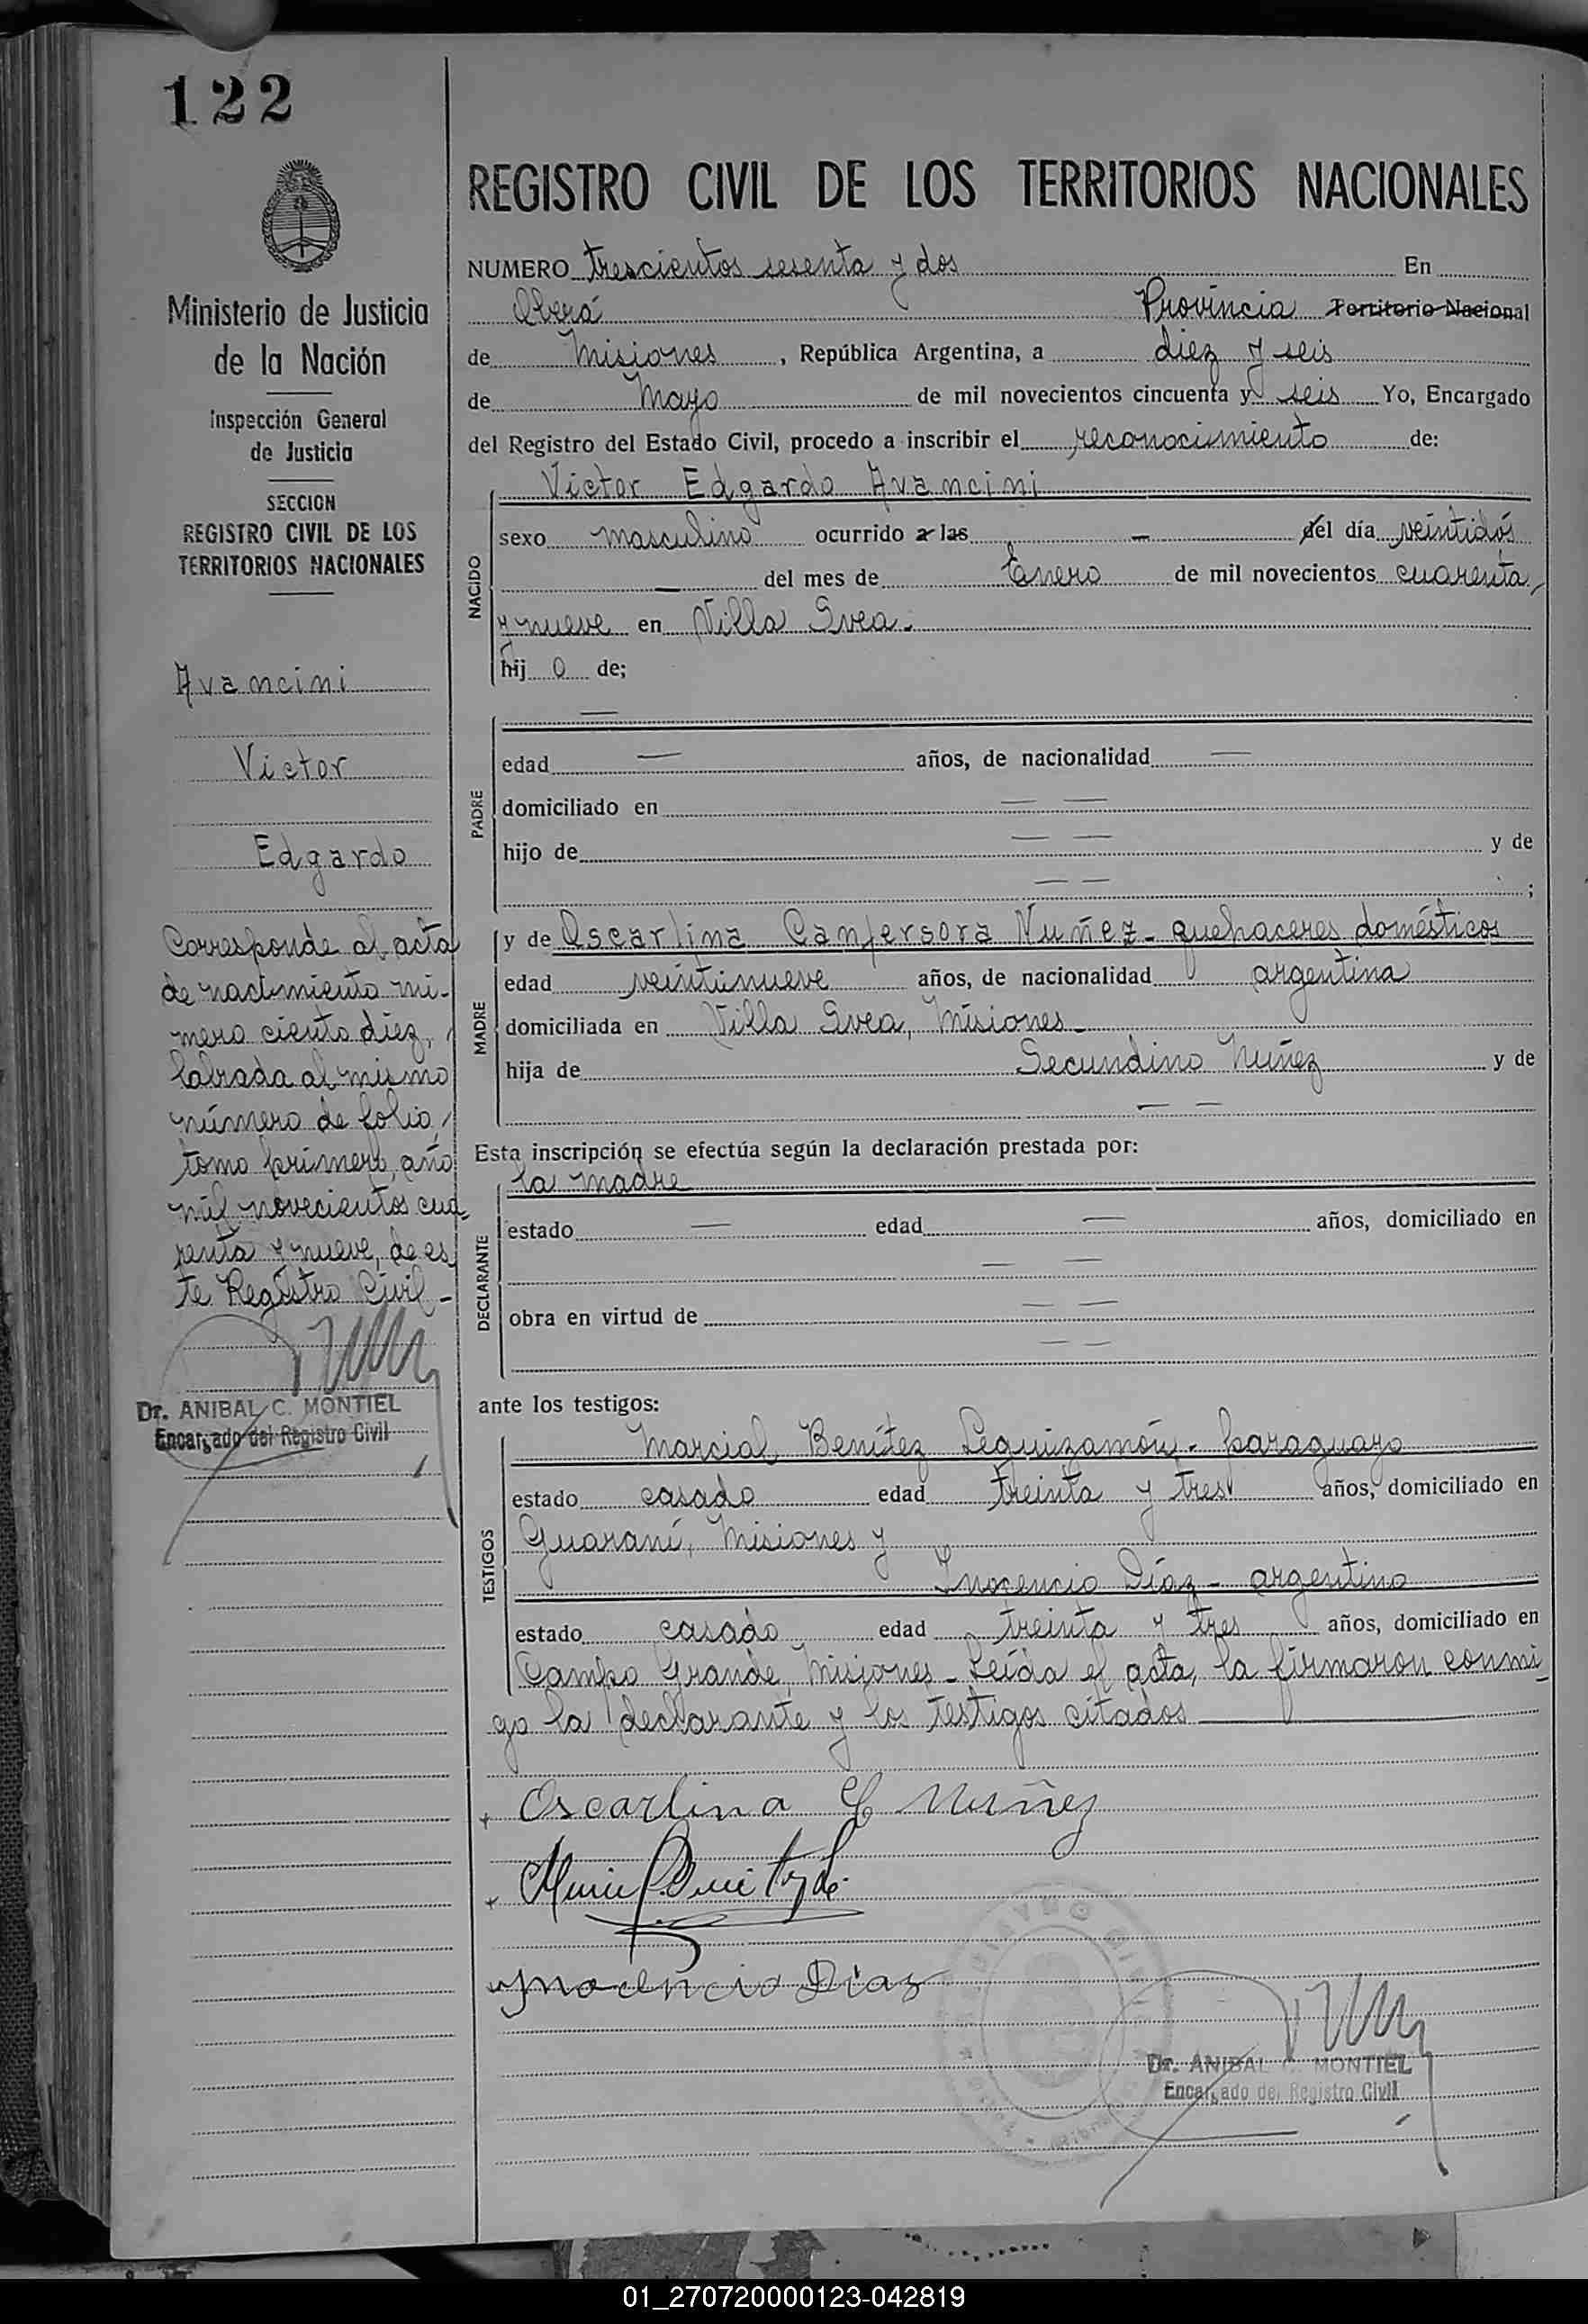 122
Ministerio de Justicia
de la Nación
Inspección General
de Justicia
SECCION
REGISTRO CIVIL DE LOS
TERRITORIOS NACIONALES
Avancini
Victor
Edgardo
Corresponde al acta
de nacimiento nú-
mero ciento diez,
labrada al mismo
número de folio,
tomo primero, año
mil novecientos cua-
renta y nueve, de es
te Registro Civil -
Dr. ANIBAL C. MONTIEL
Encargado del Registro Civil
REGISTRO CIVIL DE LOS TERRITORIOS NACIONALES
NUMERO trescientos sesenta y dos En
Oberá Provincia Territorio Nacional
de Misiones, República Argentina, a diez y seis
de Mayo de mil novecientos cincuenta y seis Yo, Encargado
del Registro del Estado Civil, procedo a inscribir el reconocimiento de:
NACIDO
Victor Edgardo Avancini
sexo masculino ocurrido a las — del día veintidós
— del mes de Enero de mil novecientos cuarenta
y nueve en Villa Svea.
hij o de;
PADRE
—
edad — años, de nacionalidad —
domiciliado en — —
hijo de — — y de
— — ;
MADRE
y de Oscarlina Canfersora Nuñez - quehaceres domésticos
edad veintinueve años, de nacionalidad argentina
domiciliada en Villa Svea, Misiones -
hija de Secundino Núñez y de
— —
Esta inscripción se efectúa según la declaración prestada por:
DECLARANTE
la madre
estado — edad — años, domiciliado en
— —
obra en virtud de — —
— —
ante los testigos:
TESTIGOS
Marcial Benítez Leguizamón - paraguayo
estado casado edad treinta y tres años, domiciliado en
Guaraní, Misiones y
Inocencio Díaz - argentino
estado casado edad treinta y tres años, domiciliado en
Campo Grande, Misiones - Leída el acta, la firmaron conmi-
go la declarante y los testigos citados
Oscarlina C Nuñez
Inocencio Diaz
Dr. ANIBAL C. MONTIEL
Encargado del Registro Civil
01_270720000123-042819